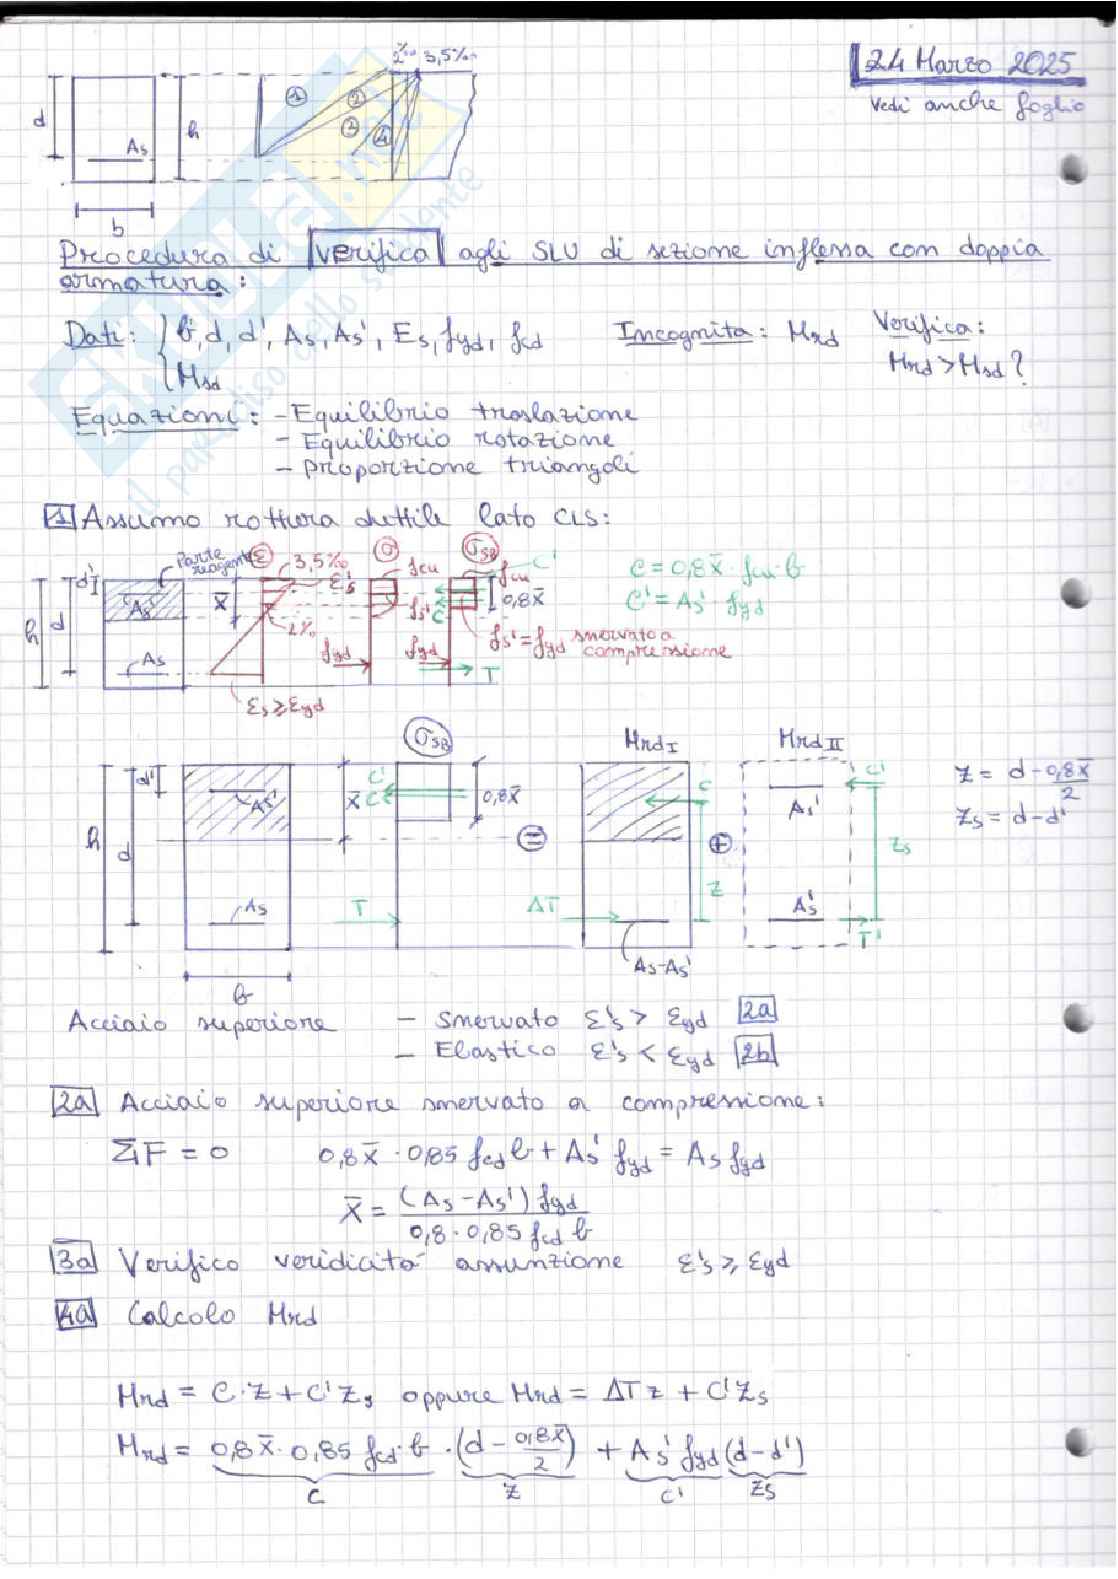 24 Marzo 2025
Vedi anche foglio
2‰ 3,5‰
1 2 3 4
d
As
h
b
Procedura di verifica agli SLU di sezione inflessa con doppia
armatura:
Dati: { b, d, d', As, As', Es, fyd, fcd Incognita: Mrd Verifica:
Msd Mrd > Msd ?
Equazioni: - Equilibrio traslazione
- Equilibrio rotazione
- proporzione triangoli
1 Assumo rottura duttile lato CLS:
Parte reagente ε 3,5‰ ε's σ fcu σSB fcu C'
C = 0,8x̄ · fcu · b
C' = As' · fyd
d' h d As' x̄ 2‰ fs' C 0,8x̄
fs' = fyd snervato a
compressione
As fyd fyd T
εs ≥ εyd
σSB MrdI MrdII
z = d - 0,8x̄/2
zs = d - d'
d' As' x̄ C' C 0,8x̄ C As' C'
h d = + z zs
As T ΔT As' T'
As-As'
b
Acciaio superiore - snervato ε's > εyd 2a
- Elastico ε's < εyd 2b
2a Acciaio superiore snervato a compressione:
ΣF = 0 0,8x̄ · 0,85 fcd b + As' fyd = As fyd
x̄ = (As - As') fyd / 0,8 · 0,85 fcd b
3a Verifico veridicità assunzione ε's ≥ εyd
4a Calcolo Mrd
Mrd = C · z + C' zs oppure Mrd = ΔT z + C' zs
Mrd = 0,8x̄ · 0,85 fcd · b · (d - 0,8x̄/2) + As' fyd (d - d')
C z C' zs
SKUOLA.net
il paradiso dello studente